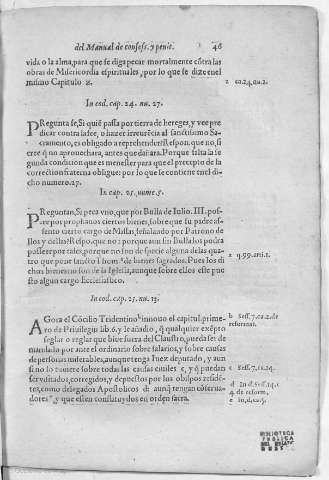 del Manual de confess. y penit. 46
vida o la alma, para que se diga pecar mortalmente cõtra las
obras de Misericordia espirituales, por lo que se dize en el
mismo Capitulo z. z ca.24.nu.2.
In eod. cap. 24. nu. 27.
Pregunta se, Si quiẽ passa por tierra de hereges, y vee pre
dicar contra la fee, o hazer irreuerẽcia al sanctissimo Sa-
cramento, es obligado a reprehender? Respon. que no, si
cree q̃ no aprouechara, antes que dañara. Porque falta la se
gunda condicion que es menester para que el precepto de la
correction fraterna obligue: por lo que se contiene en el di-
cho numero. 27.
In cap. 25. nume. 5.
Preguntan, Si peca vno, que por Bulla de Iulio. III. pos-
see por prophanos ciertos bienes, sobre que su padre as-
sento cierto cargo de Missas, señalando por Patrono de
llos y Respo. que no: porque aun sin Bulla los podia
posseer por tales, porque no son de specie alguna de las qua
tro que pone sancto Thom. a de bienes sagrados. Pues los di a q.99.arti.1.
chos bienes no son de la Iglesia, aunque sobre ellos este pue
sto algun cargo Ecclesiastico.
In eod. cap. 25. nu. 13.
Agora el Cõcilio Tridentino b innouo el capitul. prime- b Sess.7.ca.2. de
ro de Priuilegijs lib. 6. y le añadio, q̃ qualquier exẽpto reformat.
seglar o reglar que biue fuera del Claustro, pueda ser de
mandado por ante el ordinario sobre salarios, y sobre causas
de personas miserables, aunque tenga Iuez deputado, y aun
si no lo tuuiere sobre todas las causas ciuiles c, y q̃ puedan c Sess.7.ca.14.
ser visitados, corregidos, y depuestos por los obispos residẽ-
tes, como delegados Apostolicos d: aunq̃ tengan cõserua- d In d. Sess.14.c
dores e, y que esten constituydos en orden sacra. 4. de reform.
e In, d, ca, 5.
BIBLIOTECA
PUBLICA